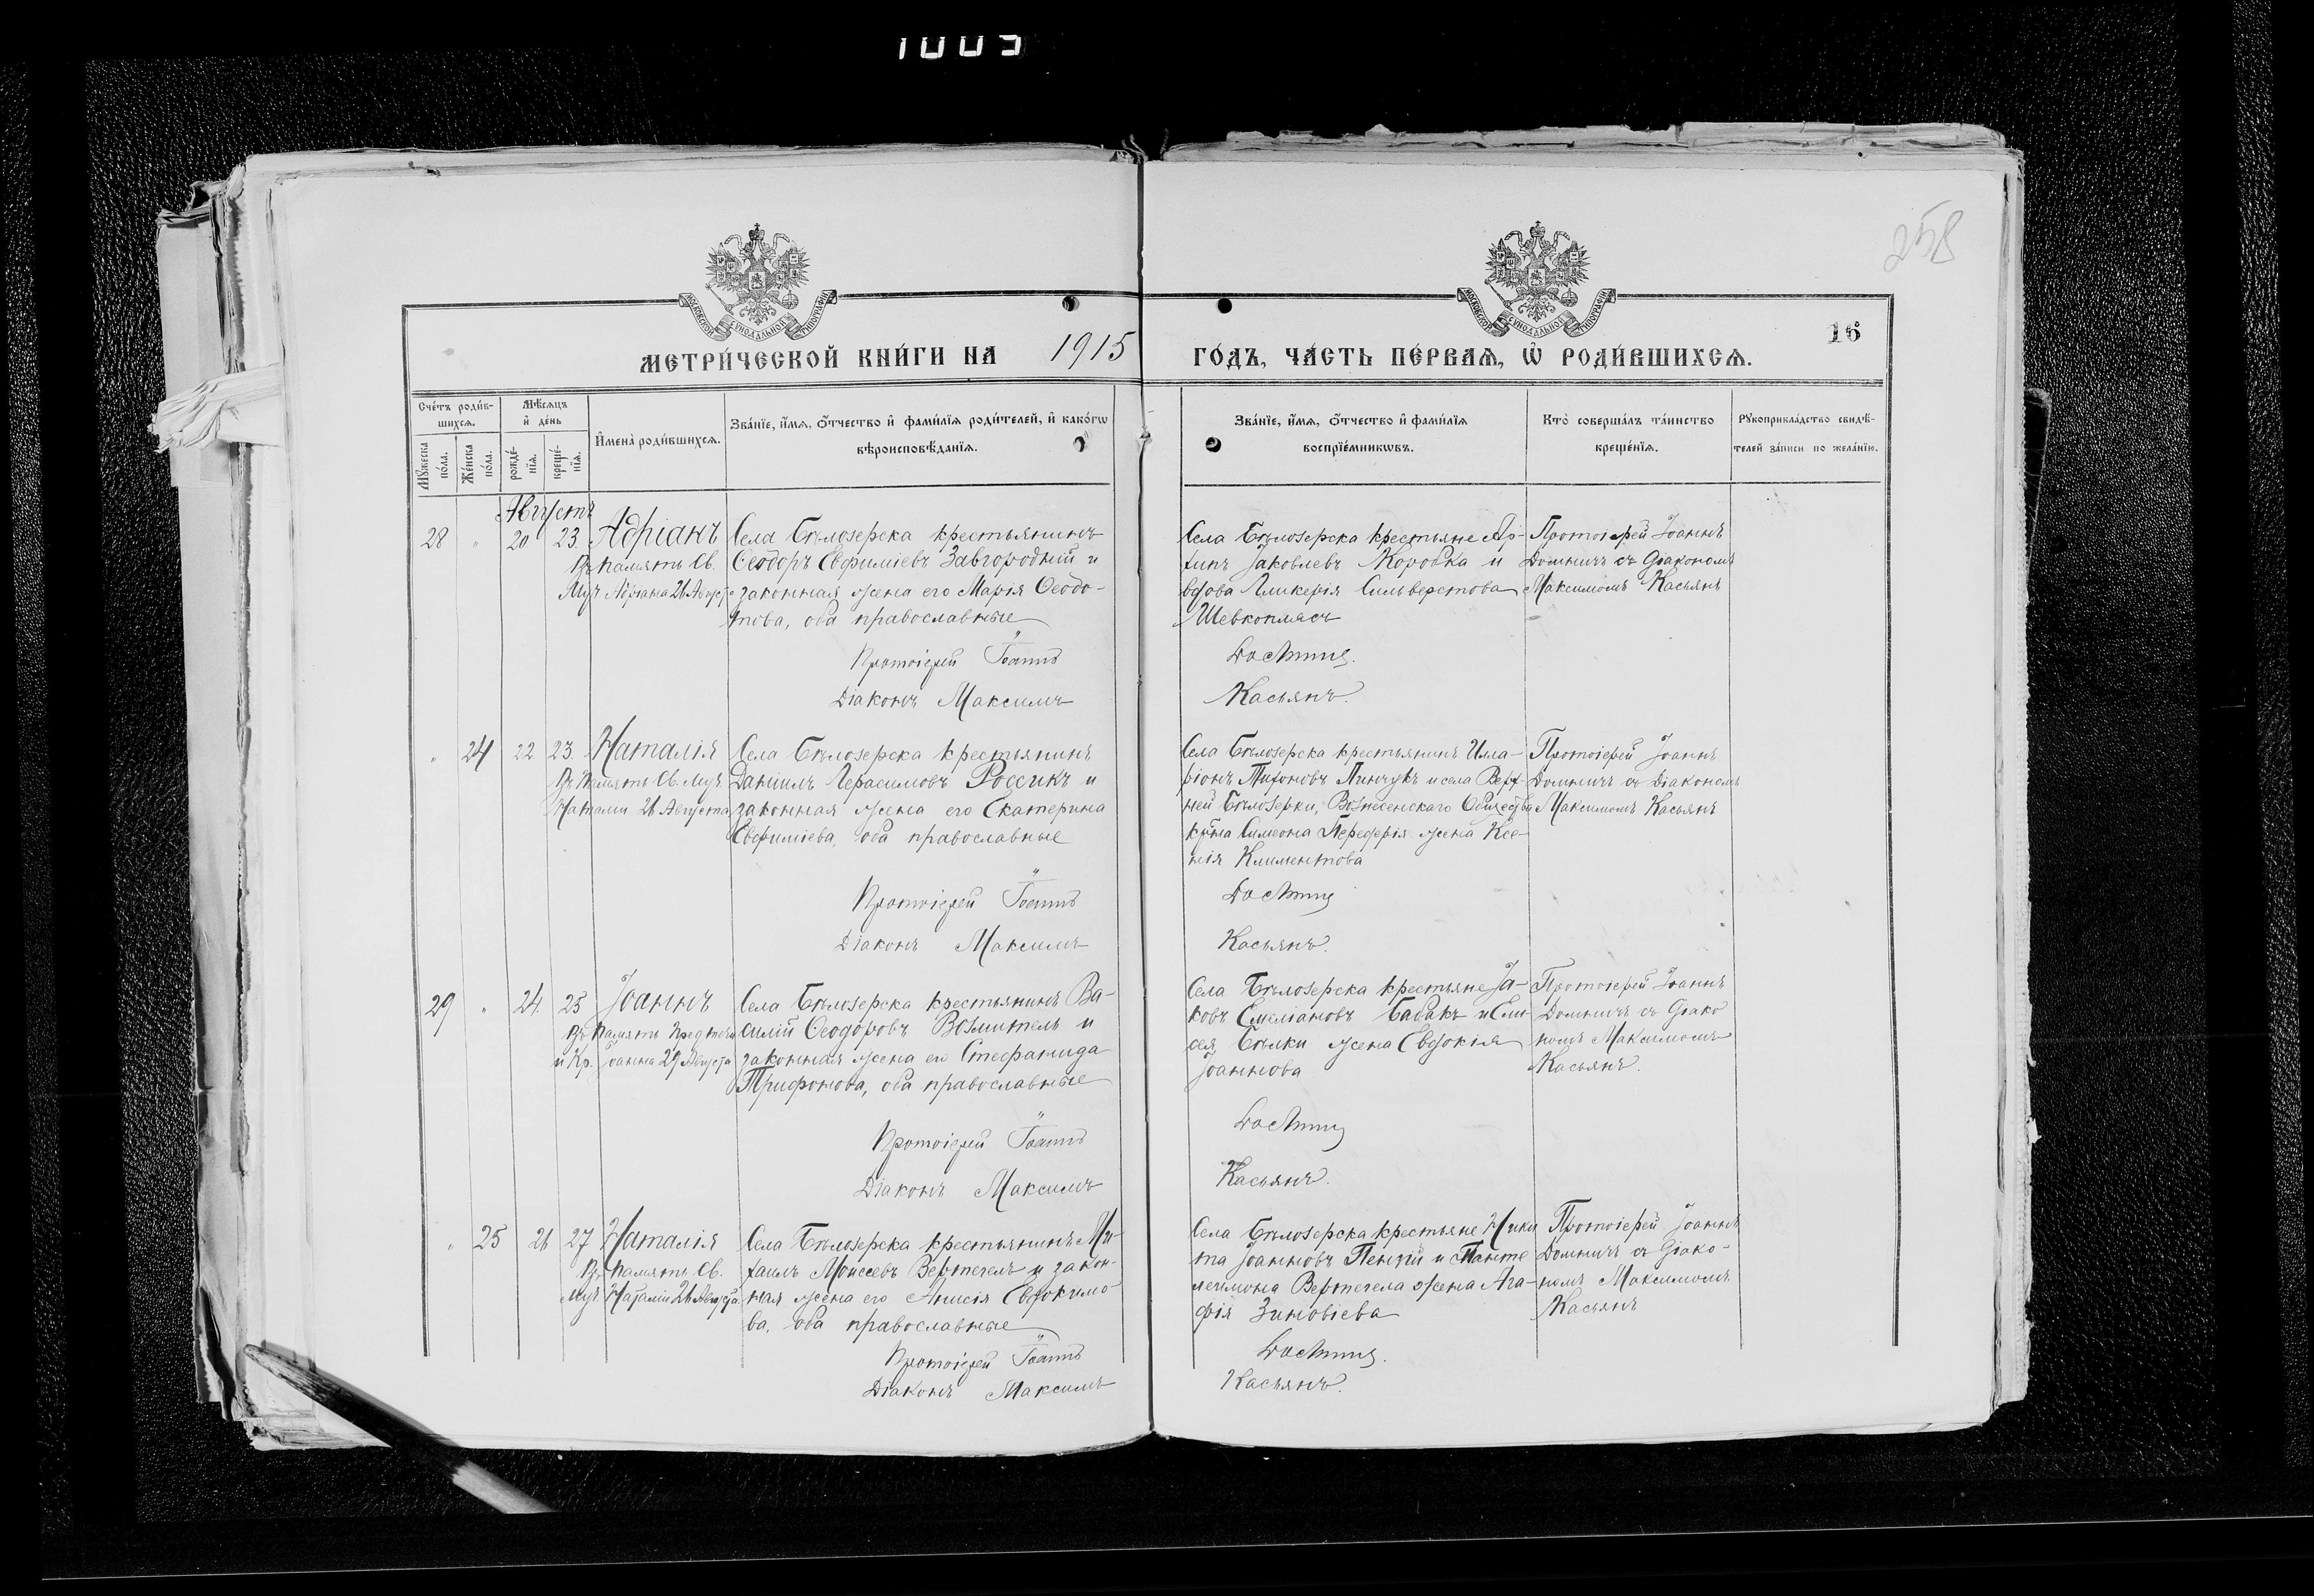 1003
258
16
МЕТРИ́ЧЕСКОЙ КНИ́ГИ НА 1915 ГО́ДЪ, ЧА́СТЬ ПЕ́РВАѦ, Ѡ҆ РОДИ́ВШИХСѦ.
МОСКОВСКОЙ СѴНОДАЛЬНОЙ ТИПОГРАФІИ
МОСКОВСКОЙ СѴНОДАЛЬНОЙ ТИПОГРАФІИ
Сче́тъ роди́в-
шихсѧ.
Мꙋ́жеска по́ла.
Же́нска по́ла.
Мѣ́сѧцъ
и҆ де́нь
рожде́-
нїѧ.
креще́-
нїѧ.
И҆мена̀ роди́вшихсѧ.
Зва́нїе, и҆́мѧ, ѻ҆́тчество и҆ фами́лїѧ роди́телей, и҆ како́гѡ
вѣроисповѣ́данїѧ.
Зва́нїе, и҆́мѧ, ѻ҆́тчество и҆ фами́лїѧ
воспрїе́мникѡвъ.
Кто̀ соверша́лъ та́инство
креще́нїѧ.
Рꙋкоприкла́дство свидѣ́-
телей за́писи по жела́нїю.
Августъ
28 " 20 23 Адріанъ
Въ память Св.
Муч Адріана 26 Августа
Села Бѣлозерска крестьянинъ
Ѳеодоръ Евфиміевъ Завгородній и
законная жена его Марія Ѳеодо-
това, оба православные
Протоіерей Іоаннъ
Діаконъ Максимъ
Села Бѣлозерска крестьяне
Іаковлевъ Коробка и
вдова Гликерія Сильверстова
Шевкоплясъ
Домнич
Касьянъ.
Протоіерей Іоаннъ
Домничъ съ Діакономъ
Максимомъ Касьянъ
" 24 22 23 Наталія
Въ память Св. Муч.
Наталіи 26 Августа
Села Бѣлозерска крестьянинъ
Даніилъ Герасимовъ Россикъ и
законная жена его Екатерина
Евфиміева, оба православные
Протоіерей Іоаннъ
Діаконъ Максимъ
Села Бѣлозерска крестьянинъ Ила-
ріонъ Пинчукъ и села Верх-
ней Бѣлозерки, Вознесенскаго Общества
Симеона жена Ксе-
нія Климентова
Домнич
Касьянъ.
Протоіерей Іоаннъ
Домничъ съ Діакономъ
Максимомъ Касьянъ
29 " 24. 25 Іоаннъ
Въ память Предтечи
и Кр. Іоанна 29 Августа
Села Бѣлозерска крестьянинъ Ва-
силій Ѳеодоровъ Возмитель и
законная жена его Стефанида
Трифонова, оба православные
Протоіерей Іоаннъ
Діаконъ Максимъ
Села Бѣлозерска крестьяне Іа-
ковъ Емеліановъ Бабакъ и Ели-
сея Бѣлки жена Евдокія
Іоаннова
Домнич
Касьянъ.
Протоіерей Іоаннъ
Домничъ съ Діако
номъ Максимомъ
Касьянъ.
" 25 26 27 Наталія
Въ память Св.
Муч. Наталіи 26 Августа
Села Бѣлозерска крестьянинъ Ми-
хаилъ Моисеевъ Вертегелъ и закон-
ная жена его Анисія Евдокимо
ва, оба православные
Протоіерей Іоаннъ
Діаконъ Максимъ
Села Бѣлозерска крестьяне Ники
та Іоанновъ и Панте
леимона Вертегела жена Ага-
фія Зиновіева
Домнич.
Касьянъ.
Протоіерей Іоаннъ
Домничъ съ Діако-
номъ Максимомъ
Касьянъ